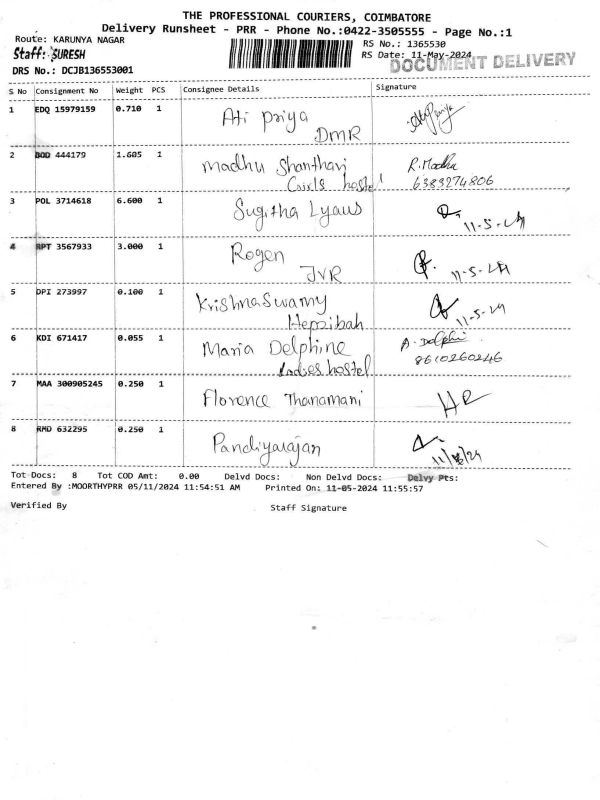 THE PROFESSIONAL COURIERS, COIMBATORE
Delivery Runsheet - PRR - Phone No.:0422-3505555 - Page No.:1
Route: KARUNYA NAGAR
RS No.: 1365530
Staff: SURESH
RS Date: 11-May-2024
DOCUMENT DELIVERY
DRS No.: DCJB136553001
S No Consignment No Weight PCS Consignee Details Signature
1 EDQ 15979159 0.710 1 Ati priya
DMR
2 BOD 444179 1.605 1 Madhu Shanthavi R. Madhu
Girls hostel 6383274806
3 POL 3714618 6.600 1 Sugitha Lyaus
11-5-24
4 RPT 3567933 3.000 1 Rogen
JVR 11-5-24
5 DPI 273997 0.100 1 KrishnaSwamy
Hepzibah 11-5-24
6 KDI 671417 0.055 1 Maria Delphine A. Delphi
Ladies hostel 8610260246
7 MAA 300905245 0.250 1 Florence Thanamani
8 RMD 632295 0.250 1 Pandiyarajan
Tot Docs: 8 Tot COD Amt: 0.00 Delvd Docs: Non Delvd Docs: Delvy Pts:
Entered By :MOORTHYPRR 05/11/2024 11:54:51 AM Printed On: 11-05-2024 11:55:57
Verified By Staff Signature